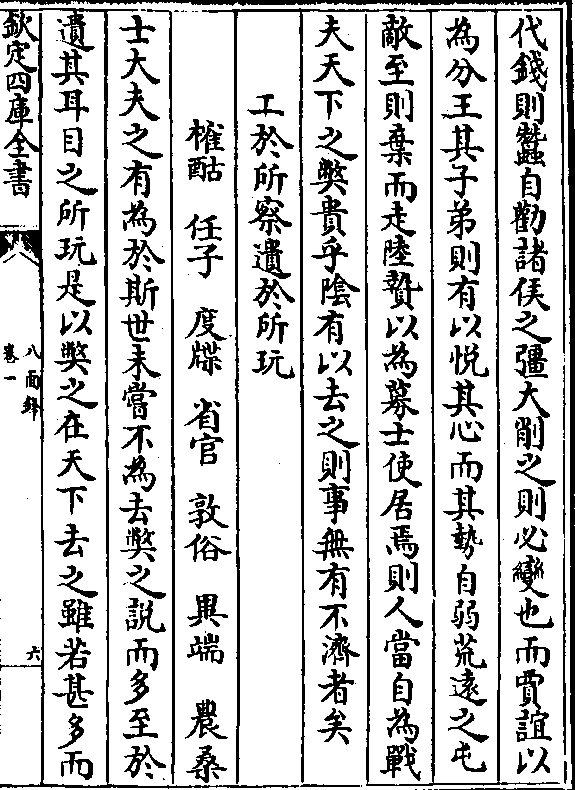 代錢則蠶自勸諸侯之彊大削之則必變也而賈誼以
為分王其子弟則有以悅其心而其勢自弱荒遠之屯
敵至則棄而走陸贄以為募士使居焉則人當自為戰
夫天下之弊貴乎陰有以去之則事無有不濟者矣
工於所察遺於所玩
榷酤 任子 度牒 省官 敦俗 異端 農桑
士大夫之有為於斯世未嘗不為去弊之說而多至於
遺其耳目之所玩是以弊之在天下去之雖若甚多而
欽定四庫全書
八面鋒
卷一
六